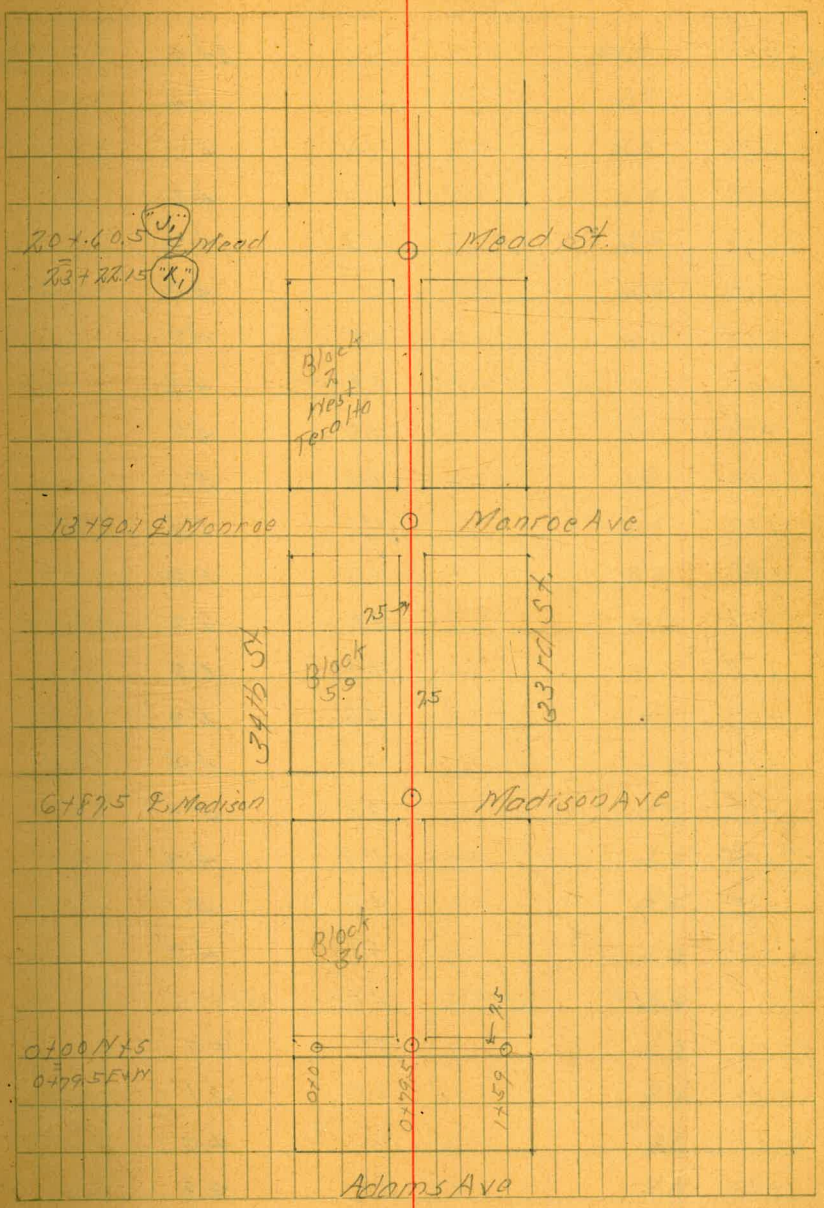 "J,"
20+60.5 ℄ Mead
Mead St.
=
23+22.15 "K,"
Block
2
West
Teralto
13+90.1 ℄ Monroe
Monroe Ave.
7.5
34th St.
Block
59
33rd St.
7.5
6+87.5 ℄ Madison
Madison Ave
Block
36
7.5
0+00 N+S
=
0+79.5 E+W
0+0
0+79.5
1+59
Adams Ave